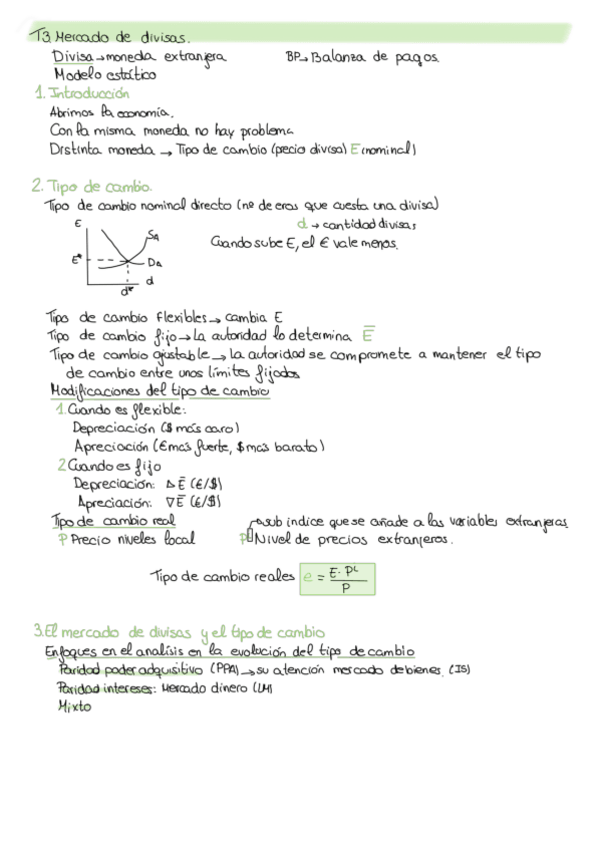 T3. Mercado de divisas.
Divisa → moneda extranjera BP → Balanza de pagos.
Modelo estático
1. Introducción
Abrimos la economía.
Con la misma moneda no hay problema
Distinta moneda → Tipo de cambio (precio divisa) E (nominal)
2. Tipo de cambio.
Tipo de cambio nominal directo (nº de eros que cuesta una divisa)
E d → cantidad divisas
SA Cuando sube E, el € vale menos.
E*
DA
d
d*
Tipo de cambio flexibles → cambia E
Tipo de cambio fijo → La autoridad lo determina E̅
Tipo de cambio ajustable → la autoridad se compromete a mantener el tipo
de cambio entre unos límites fijados
Modificaciones del tipo de cambio
1. Cuando es flexible:
Depreciación ($ más caro)
Apreciación (€ más fuerte, $ más barato)
2 Cuando es fijo
Depreciación: △ E̅ (€/$)
Apreciación: ▽ E̅ (€/$)
Tipo de cambio real → sub indice que se añade a las variables extranjeras.
P Precio niveles local Nivel de precios extranjeros.
Tipo de cambio reales e = E · P^L / P
3. El mercado de divisas y el tipo de cambio
Enfoques en el analísis en la evolución del tipo de cambio
Paridad poder adquisitivo (PPA) → su atención mercado de bienes. (IS)
Paridad intereses: Mercado dinero (LM)
Mixto